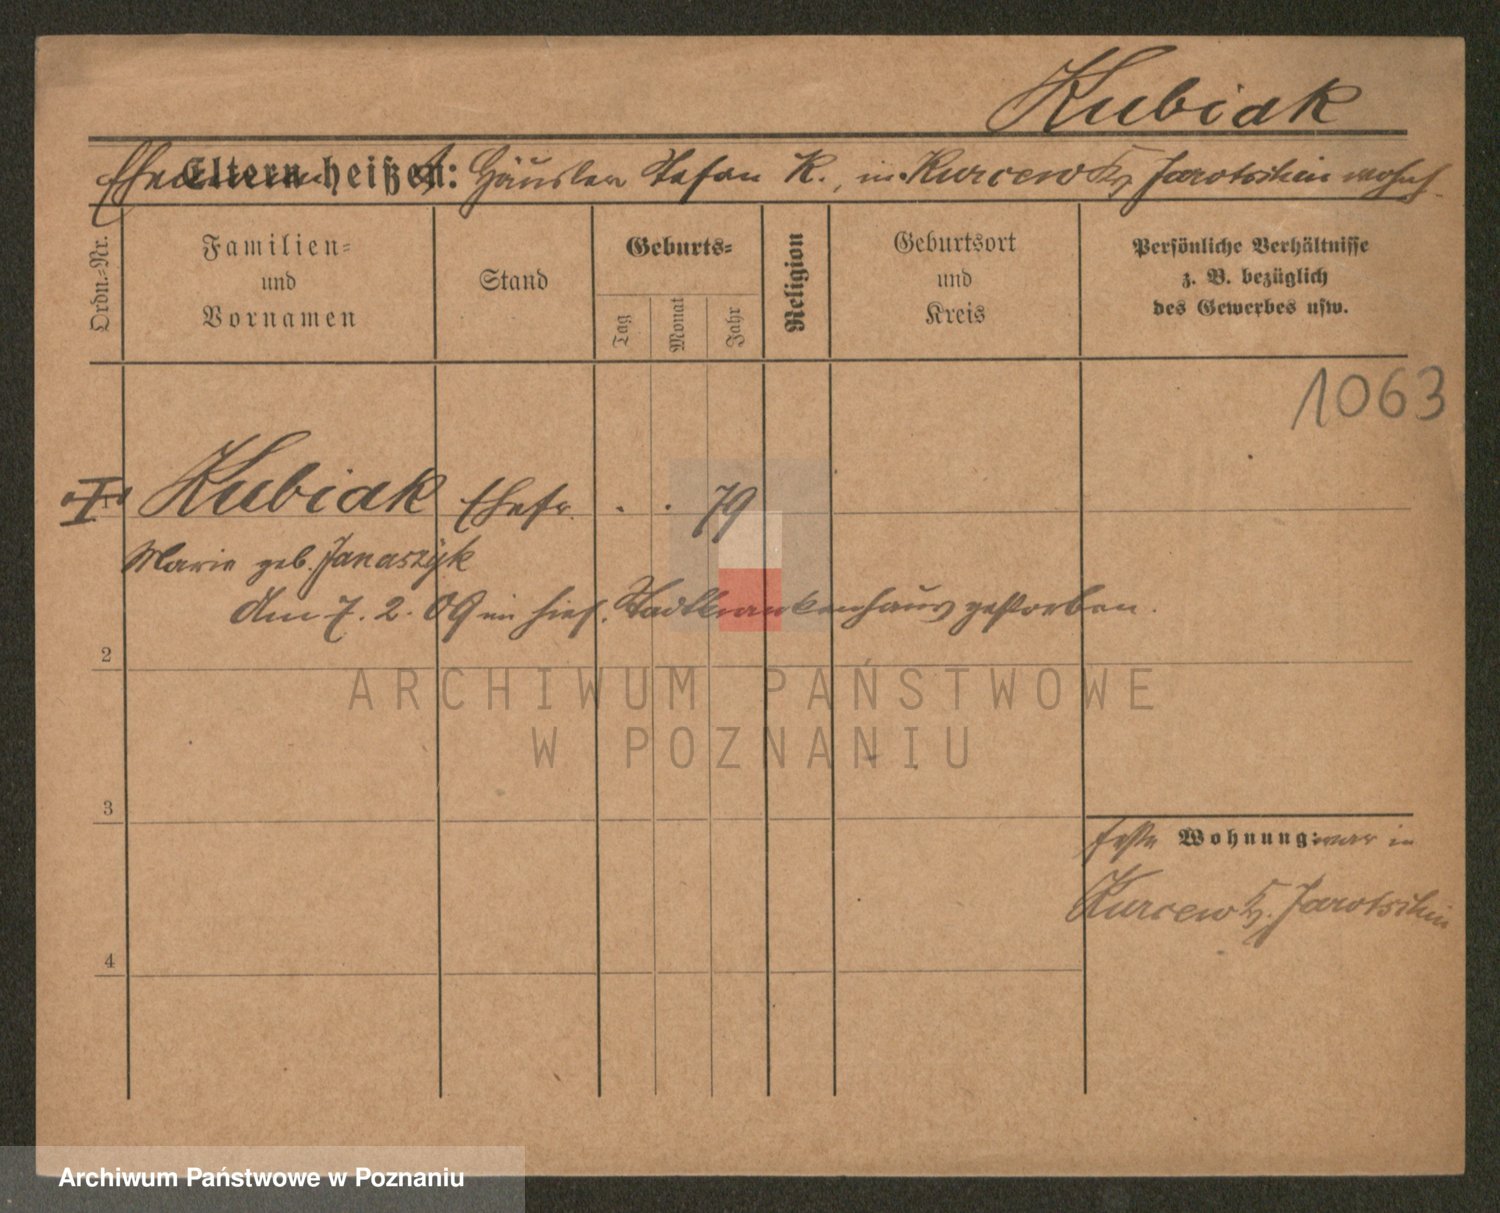 Kubiak
Ehemann Eltern heißen: Häusler Stefan K., in Kurcew Kr. Jarotschin wohnh.
Ordn.-Nr.
Familien-
und
Vornamen
Stand
Geburts-
Tag
Monat
Jahr
Religion
Geburtsort
und
Kreis
Persönliche Verhältnisse
z. B. bezüglich
des Gewerbes usw.
1063
1 Kubiak Ehefr. . . 79
Marie geb. Janaszyk
Am 7. 2. 09 im hies. Stadtkrankenhaus gestorben.
2
ARCHIWUM PAŃSTWOWE
W POZNANIU
3
feste Wohnung: war in
Kurcew Kr. Jarotschin
4
Archiwum Państwowe w Poznaniu